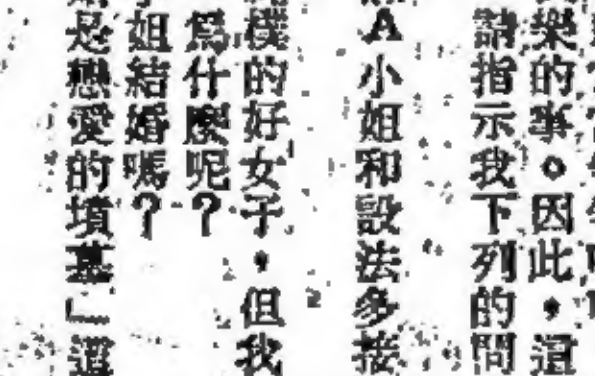 樂的事。因此，這
請指示我下列的問
A小姐和設法多接
樸的好女子，但我
爲什麼呢？
姐結婚嗎？
是戀愛的墳墓」這